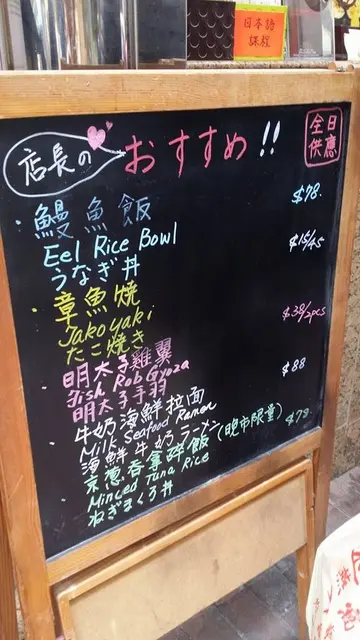 日本語
課程
店長の
おすすめ!!
全日
供應
鰻魚飯
$78.
Eel Rice Bowl
うなぎ丼
章魚焼
$15/45
Jakoyaki
たこ焼き
明太子雞翼
$38/2pcs
Fish Rob Gyoza
明太子手羽
牛奶海鮮拉面
$88
Milk Seafood Ramen
海鮮牛奶ラーメン
京葱吞拿碎飯(晚市限量) $78.
Minced Tuna Rice
ねぎまぐろ丼